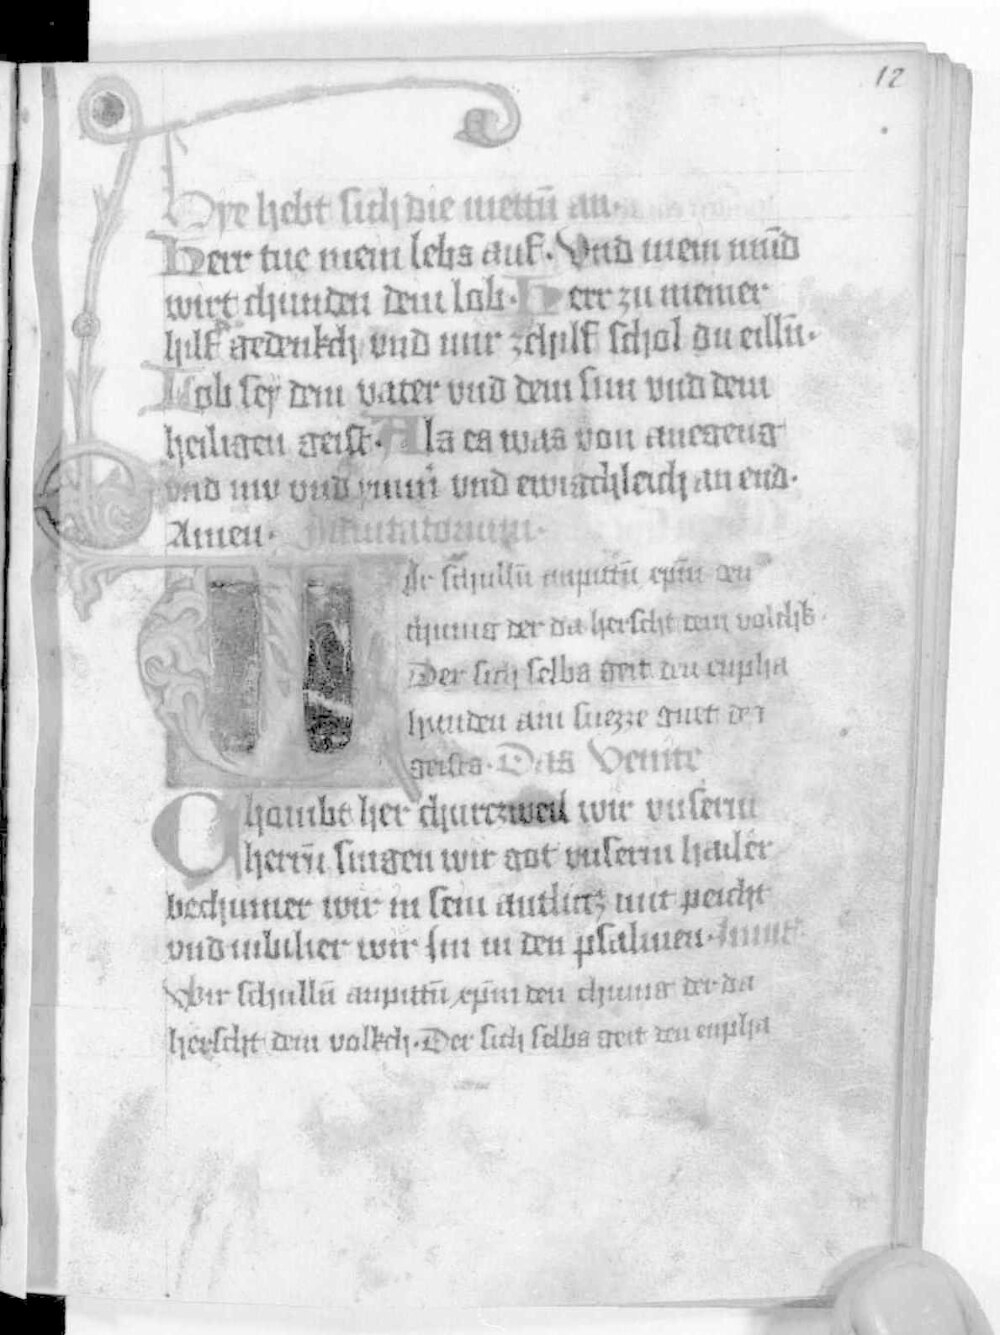 12
Hye hebt sich die mettn̄ an.
Herr tue mein lebs auf. Vnd mein mūd
wirt chunden dein lob. Herr zu meiner
hilf gedenkch vnd mir zehilf schol du eilln̄.
Lob sey dem vater vnd dem sun vnd dem
heiligen geist. Als es was von anegeng
vnd nw vnd ymm̄ vnd ewigchleich an end.
Amen. Inuitatorium.
Wir schulln̄ anpittn̄ xp̄m den
chunig der da herscht dem volchk.
Der sich selbs geit den enpha
hunden am suezze guet des
geists. Das Venite
Chombt her churczweil wir vnserm
herrn̄ singen wir got vnserm hailer
bechumer wir in sein antlitz mit peicht
vnd iubilier wir im in den psalmen.
Wir schulln̄ anpittn̄ xp̄m den chunig der da
herscht dem volkch. Der sich selbs geit den enpha